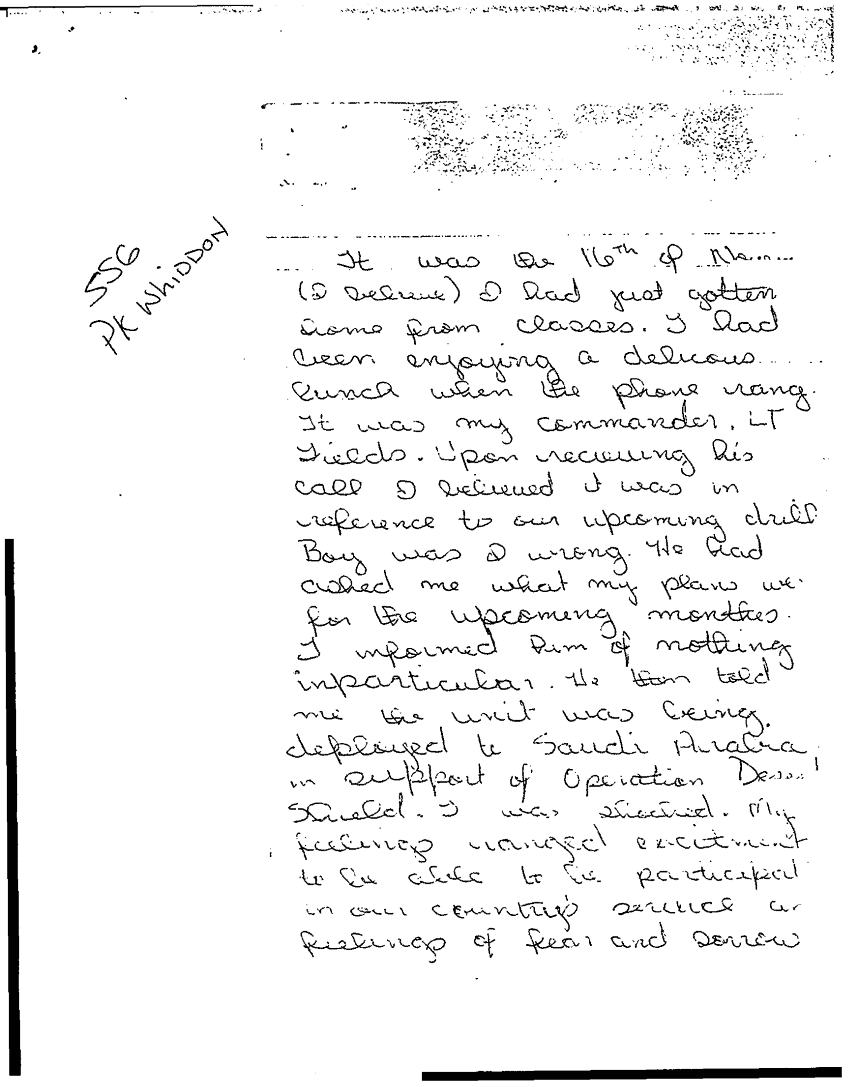 556
PK WHIDDON
It was the 16th of
(I believe) I had just gotten
home from classes. I had
been enjoying a delicous
lunch when the phone rang.
It was my commander, LT
Fields. Upon recieving his
call I believed it was in
reference to our upcoming drill
Boy was I wrong. He had
asked me what my plans we
for the upcoming months.
I informed him of nothing
inparticular. He then told
me the unit was being
deployed to Saudi Arabia
in support of Operation Desert
Shield. I was shocked. My
feelings ranged excitment
to be able to be participat
in our country's service
feelings of fear and sorrow